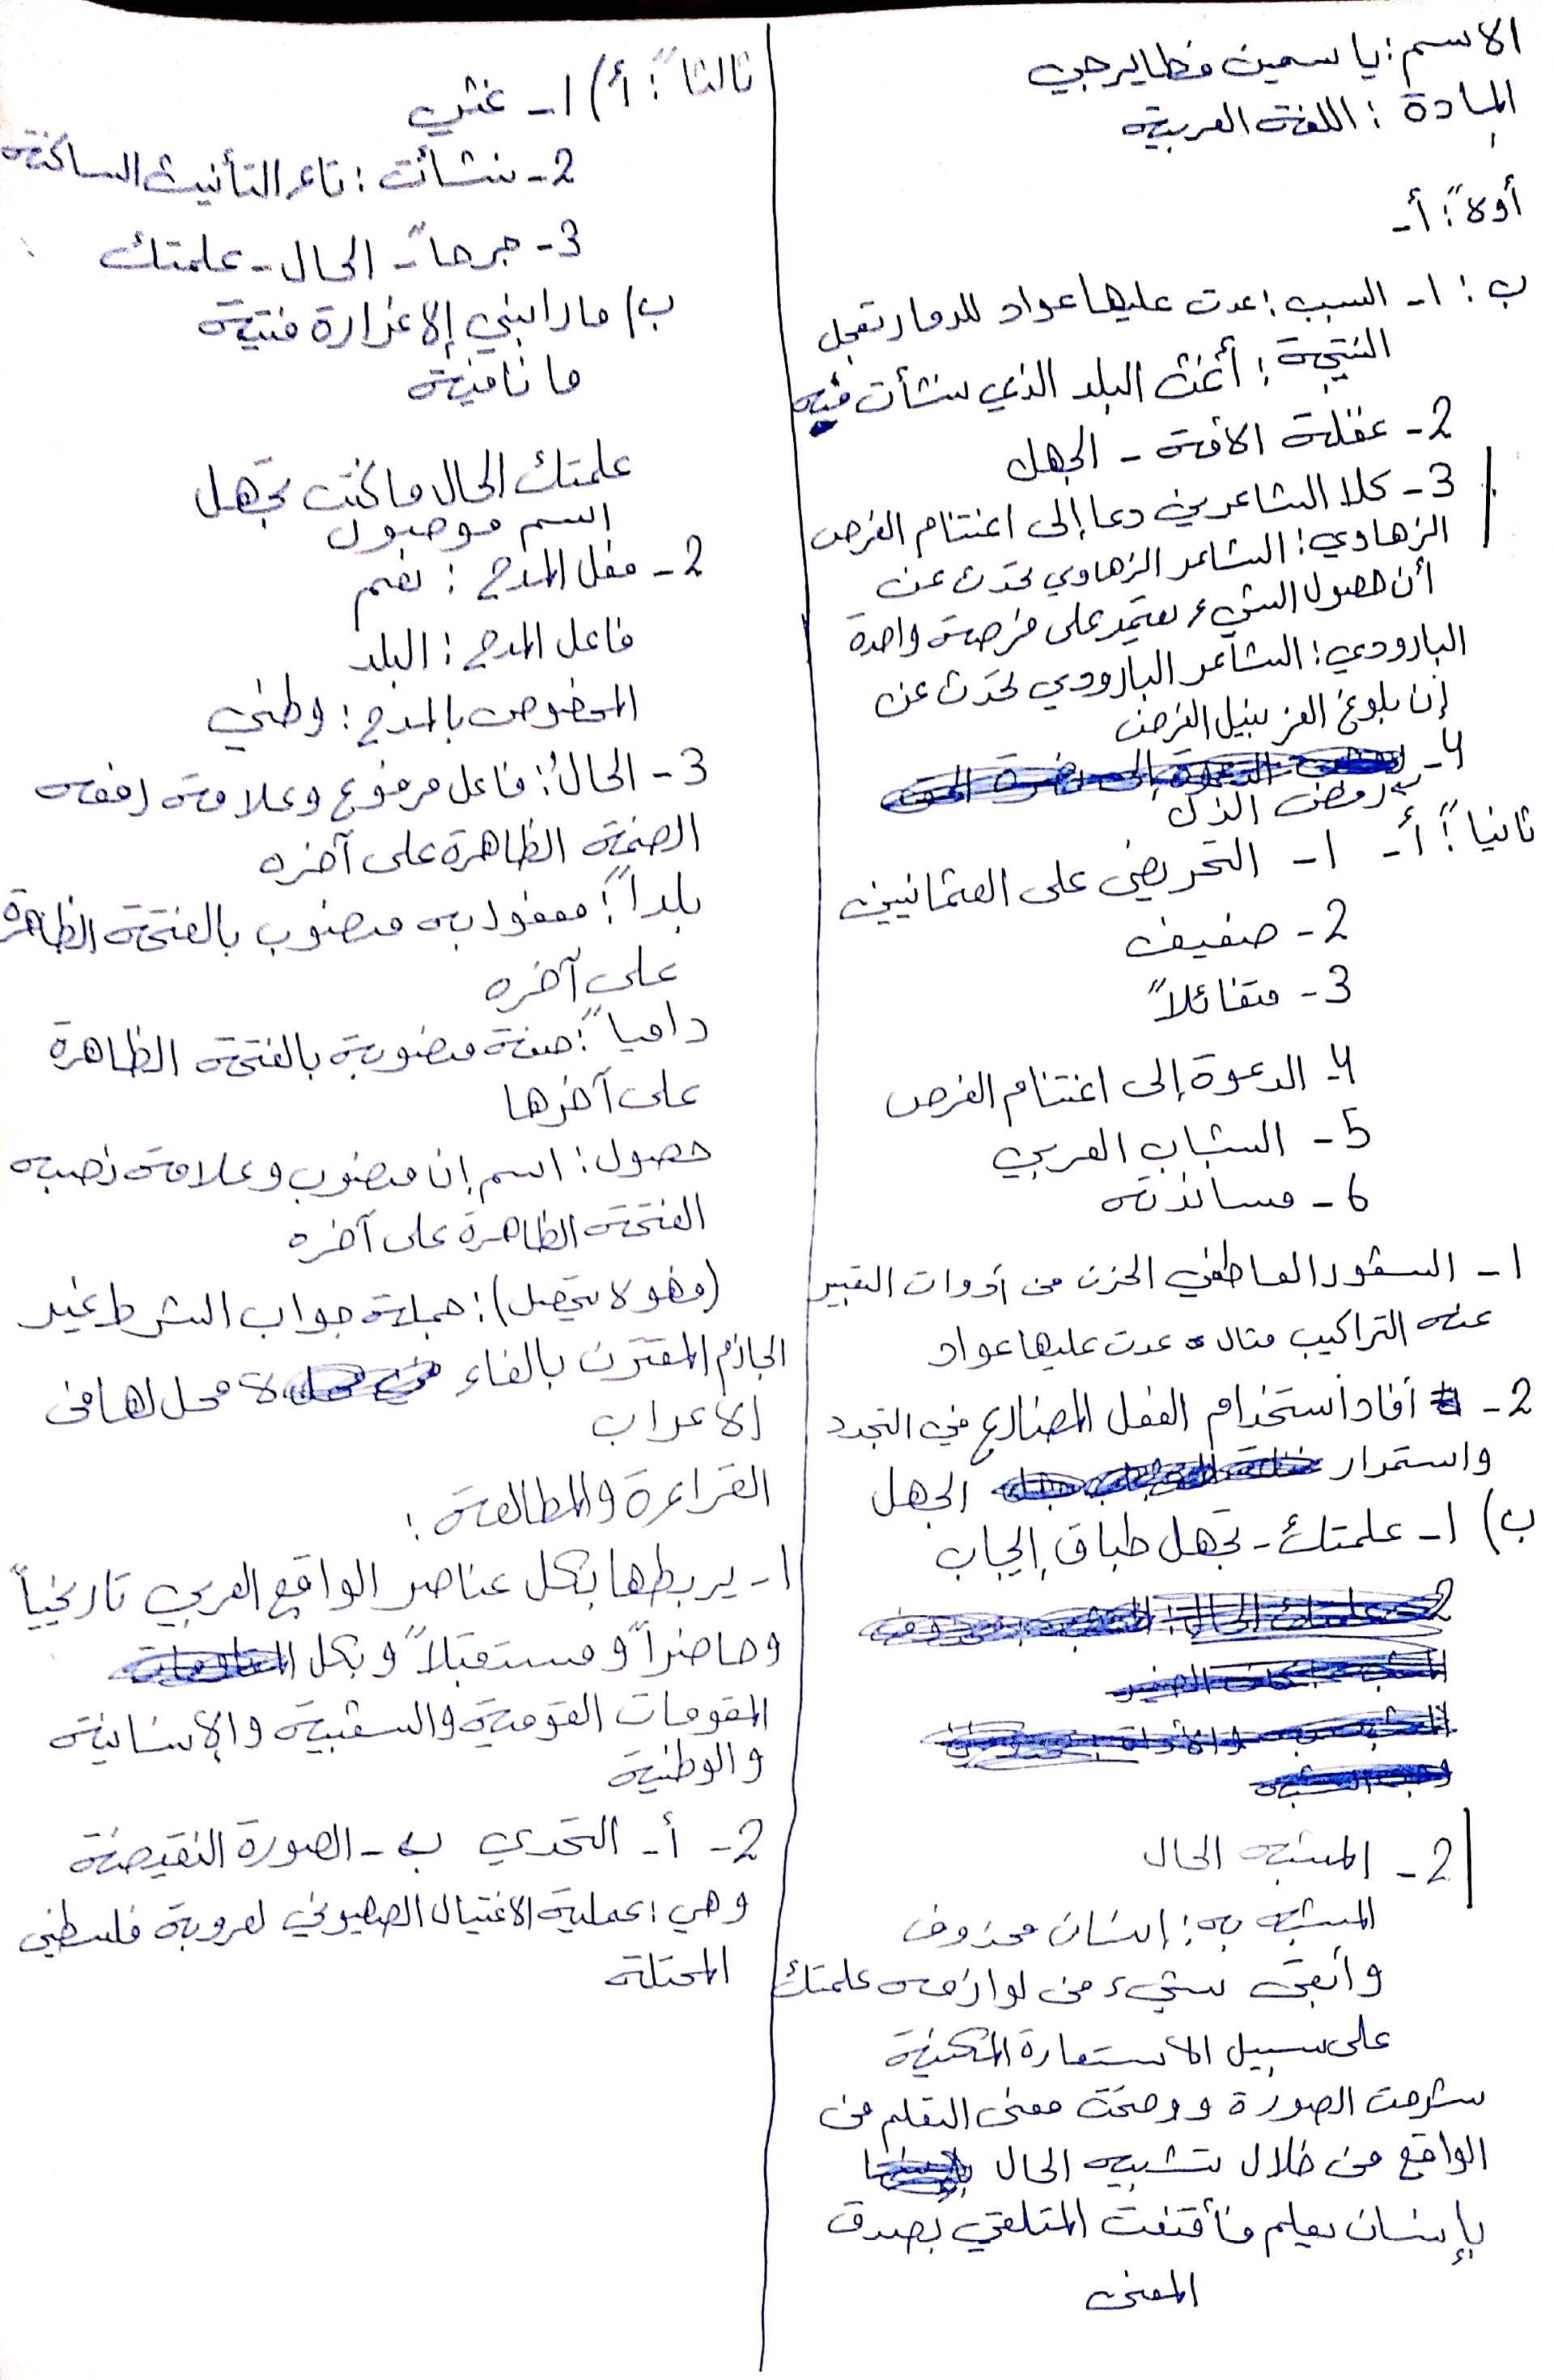 الاسم: ياسمين فطايرجي
المادة: اللغة العربية
أولاً: أ-
ب: 1- السبب: عدت عليها عواد للدمار تعجل
النتيجة: أغث البلد الذي نشأت فيه
2- غفلة الأمة - الجهل
3- كلا الشاعرين دعا إلى اغتنام الفرص
الزهاوي: الشاعر الزهاوي تحدث عن
أن حصول الشيء يعتمد على فرصة واحدة
البارودي: الشاعر البارودي تحدث عن
إن بلوغ العز بنيل الفرص
4-
رفض الذل
ثانياً: أ- 1- التحريض على العثمانيين
2- ضعيف
3- متفائلاً
4- الدعوة إلى اغتنام الفرص
5- الشباب العربي
6- مساندته
1- الشعور العاطفي الحزن من أدوات التعبير
عنه التراكيب مثال عدت عليها عواد
2- أفاد استخدام الفعل المضارع في التجدد
واستمرار الجهل
ب) 1- علمتك - تجهل طباق إيجاب
2- المشبه الحال
المشبه به: إنسان محذوف
وأبقى شيء من لوازمه علمتك
على سبيل الاستعارة المكنية
شرحت الصورة ووضحت معنى التعلم من
الواقع من خلال تشبيه الحال
بإنسان يعلم فأقنعت المتلقي بصدق
المعنى
ثالثاً: أ) 1- غثي
2- نشأت: تاء التأنيث الساكنة
3- جرحاً - الحال - علمتك
ب/ ما رابني إلا غرارة فتية
ما نافية
علمتك الحال ما كنت تجهل
اسم موصول
2- فعل المدح: نعم
فاعل المدح: البلد
المخصوص بالمدح: وطني
3- الحالُ: فاعل مرفوع وعلامة رفعه
الضمة الظاهرة على آخره
بلداً: مفعول به منصوب بالفتحة الظاهرة
على آخره
دامياً: صفة منصوبة بالفتحة الظاهرة
على آخرها
حصول: اسم إن منصوب وعلامة نصبه
الفتحة الظاهرة على آخره
(فهو لا يحصل): جملة جواب الشرط غير
الجازم المقترن بالفاء لا محل لها من
الاعراب
القراءة والمطالعة:
1- يربطها بكل عناصر الواقع العربي تاريخياً
وحاضراً و مستقبلاً و بكل
المقومات القومية والشعبية والإنسانية
والوطنية
2- أ- التحدي ب- الصورة النقيضة
وهي: عملية الاغتيال الصهيوني لعروبة فلسطين
المحتلة